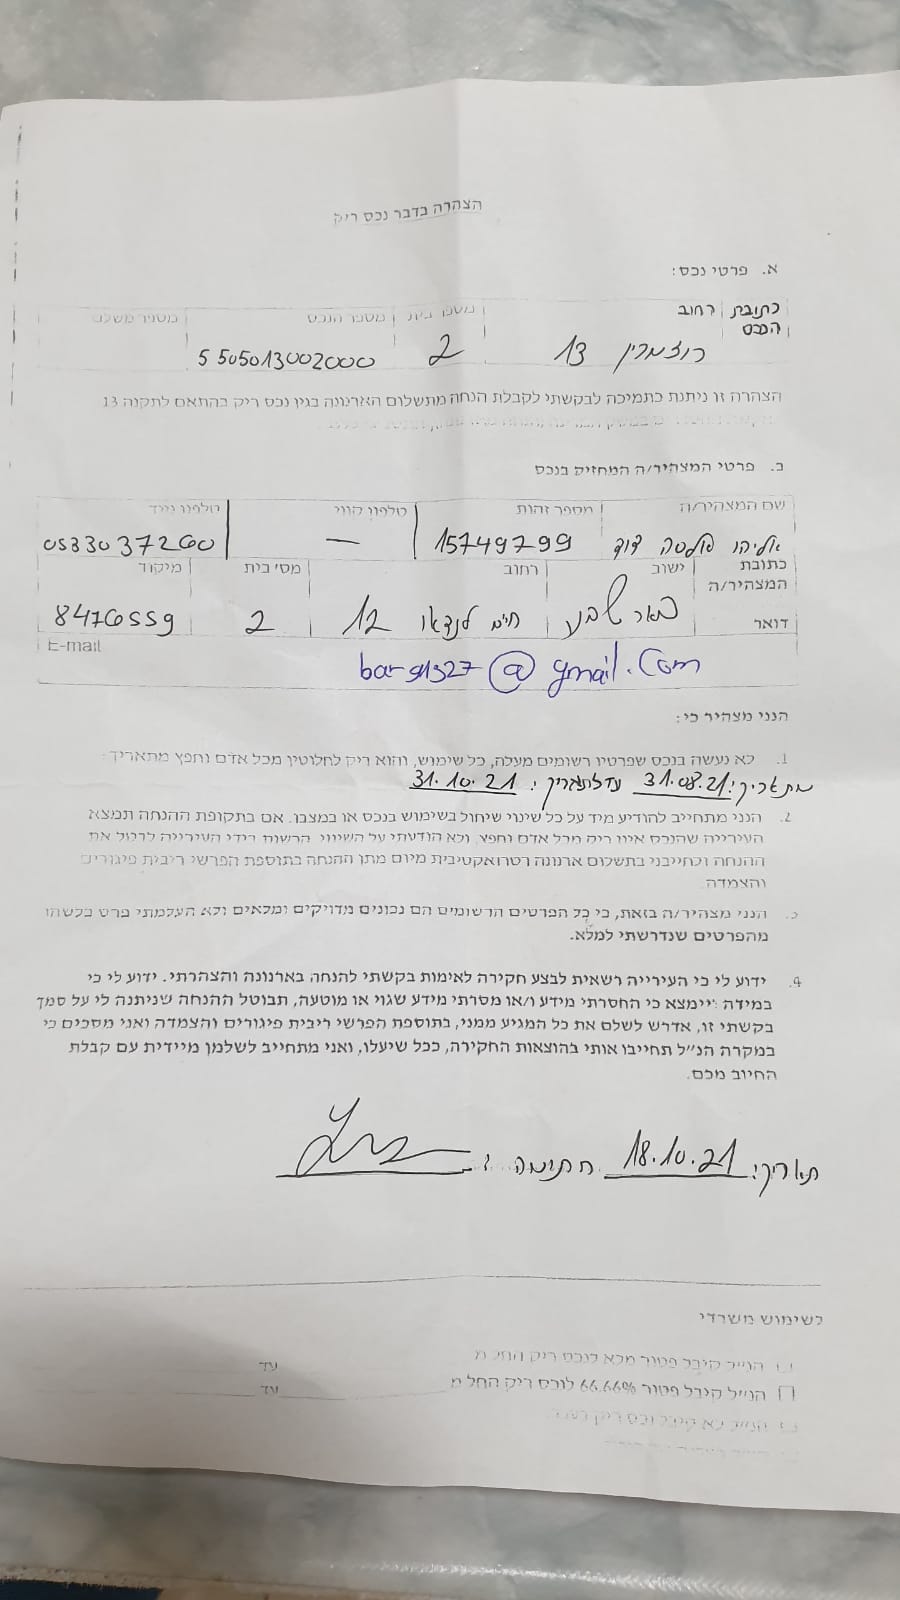 הצהרה בדבר נכס ריק
א. פרטי נכס:
כתובת הנכס רחוב מספר בית מספר הנכס מספר משלם
רוזמרין 13 2 5505013002000
הצהרה זו ניתנת כתמיכה לבקשתי לקבלת הנחה מתשלום הארנונה בגין נכס ריק בהתאם לתקנה 13
ב. פרטי המצהיר/ה המחזיק בנכס
שם המצהיר/ה מספר זהות טלפון קווי טלפון נייד
אליהו דוד 15749799 — 0533037260
כתובת המצהיר/ה ישוב רחוב מס' בית מיקוד
באר שבע חיים לנדאו 12 2 8476559
דואר E-mail
@gmail.com
הנני מצהיר כי:
1. לא נעשה בנכס שפרטיו רשומים מעלה, כל שימוש, והוא ריק לחלוטין מכל אדם וחפץ מתאריך:
מתאריך: 31.08.21 עד לתאריך: 31.10.21
2. הנני מתחייב להודיע מיד על כל שינוי שיחול בשימוש בנכס או במצבו. אם בתקופת ההנחה תמצא
העירייה שהנכס אינו ריק מכל אדם וחפץ, ולא הודעתי על השינוי, הרשות בידי העירייה לבטל את
ההנחה ולחייבני בתשלום ארנונה רטרואקטיבית מיום מתן ההנחה בתוספת הפרשי ריבית פיגורים
והצמדה.
3. הנני מצהיר/ה בזאת, כי כל הפרטים הרשומים הם נכונים מדויקים ומלאים ולא העלמתי פרט כלשהו
מהפרטים שנדרשתי למלא.
4. ידוע לי כי העירייה רשאית לבצע חקירה לאימות בקשתי להנחה בארנונה והצהרתי. ידוע לי כי
במידה יימצא כי החסרתי מידע ו/או מסרתי מידע שגוי או מוטעה, תבוטל ההנחה שניתנה לי על סמך
בקשתי זו, אדרש לשלם את כל המגיע ממני, בתוספת הפרשי ריבית פיגורים והצמדה ואני מסכים כי
במקרה הנ"ל תחייבו אותי בהוצאות החקירה, ככל שיעלו, ואני מתחייב לשלמן מיידית עם קבלת
החיוב מכם.
תאריך: 18.10.21 חתימה:
לשימוש משרדי
הנ"ל קיבל פטור מלא לנכס ריק החל מ עד
הנ"ל קיבל פטור 66.66% לנכס ריק החל מ עד
הנ"ל לא קיבל נכס ריק בעבר